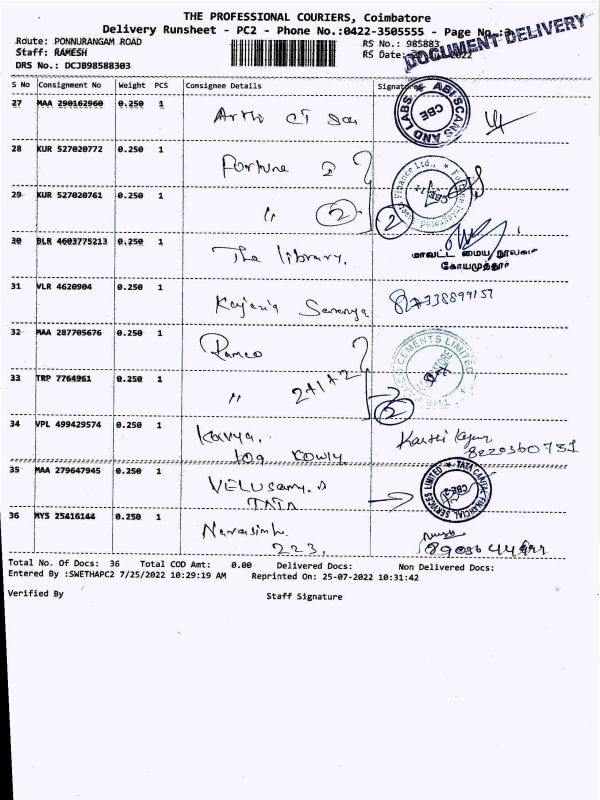 THE PROFESSIONAL COURIERS, Coimbatore
Delivery Runsheet - PC2 - Phone No.:0422-3505555 - Page No.:3
DOCUMENT DELIVERY
Route: PONNURANGAM ROAD RS No.: 985883
Staff: RAMESH RS Date: 2022
DRS No.: DCJB98588303
S No Consignment No Weight PCS Consignee Details Signature
27 MAA 290162960 0.250 1
ABI SCANS AND LABS CBE
28 KUR 527020772 0.250 1 Fortune
29 KUR 527020761 0.250 1 〃 2 2
30 BLR 4603775213 0.250 1 The library.
மாவட்ட மைய நூலகம்
கோயமுத்தூர்
31 VLR 4620904 0.250 1
32 MAA 287705676 0.250 1 Ramco
CEMENTS LIMITED
33 TRP 7764961 0.250 1 〃 2+1+2 2
34 VPL 499429574 0.250 1 Kavya.
35 MAA 279647945 0.250 1 VELUSamy.
TATA
TATA CAPITAL FINANCIAL SERVICES LIMITED
36 MYS 25416144 0.250 1 Narasimh.
223.
Total No. Of Docs: 36 Total COD Amt: 0.00 Delivered Docs: Non Delivered Docs:
Entered By :SWETHAPC2 7/25/2022 10:29:19 AM Reprinted On: 25-07-2022 10:31:42
Verified By Staff Signature